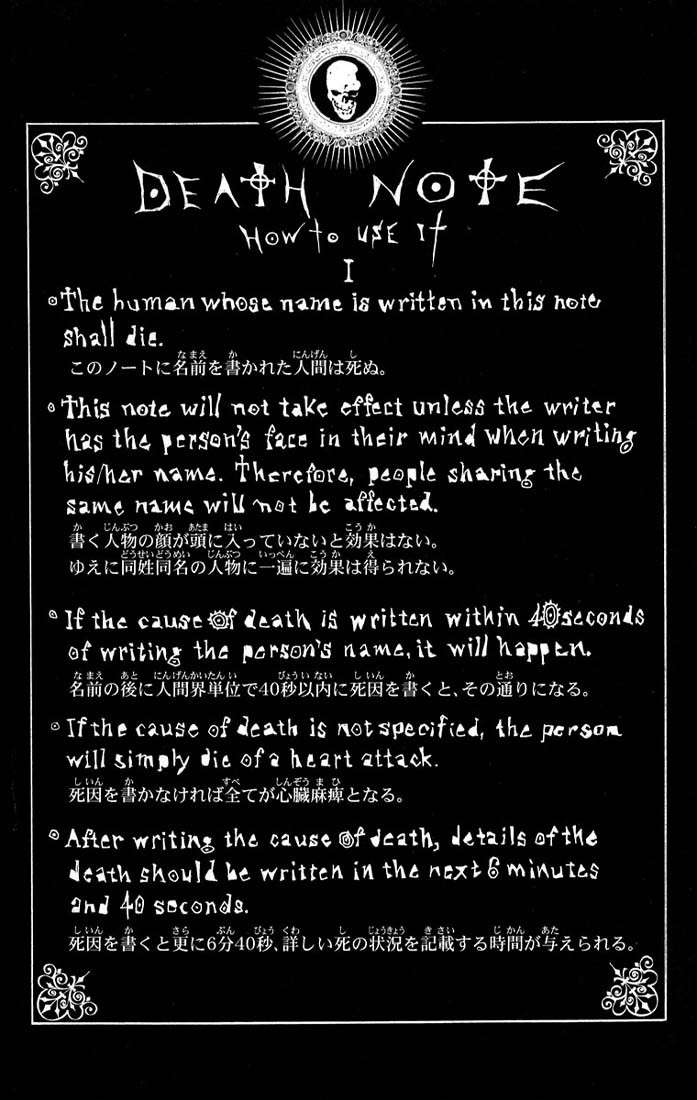 DEATH NOTE
HOW TO USE IT
I
The human whose name is written in this note
shall die.
このノートに名前を書かれた人間は死ぬ。
This note will not take effect unless the writer
has the person's face in their mind when writing
his/her name. Therefore, people sharing the
same name will not be affected.
書く人物の顔が頭に入っていないと効果はない。
ゆえに同姓同名の人物に一遍に効果は得られない。
If the cause of death is written within 40 seconds
of writing the person's name, it will happen.
名前の後に人間界単位で40秒以内に死因を書くと、その通りになる。
If the cause of death is not specified, the person
will simply die of a heart attack.
死因を書かなければ全てが心臓麻痺となる。
After writing the cause of death, details of the
death should be written in the next 6 minutes
and 40 seconds.
死因を書くと更に6分40秒、詳しい死の状況を記載する時間が与えられる。